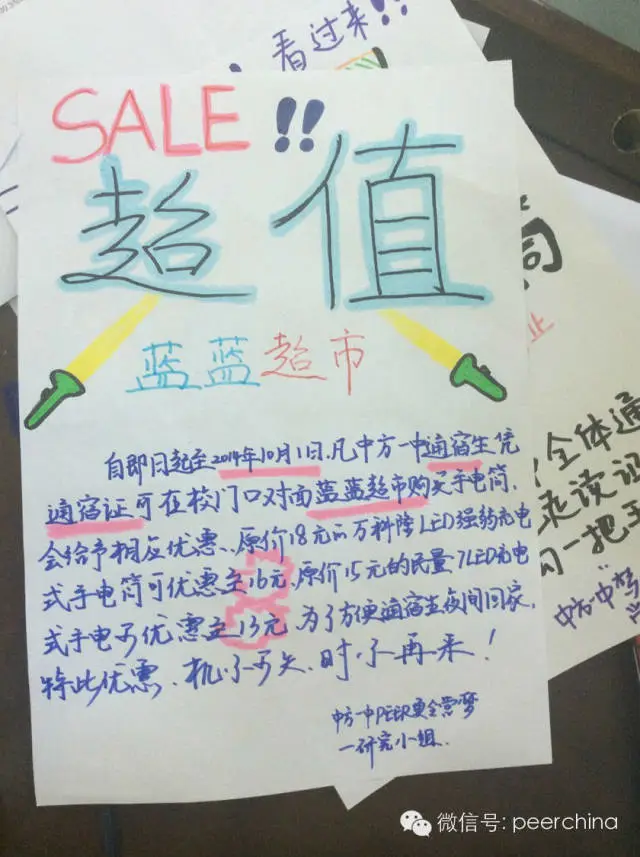 看过来!!
SALE!!
超值
蓝蓝超市
自即日起至2014年10月1日,凡中方一中通宿生凭
通宿证可在校门口对面蓝蓝超市购买手电筒,
会给予相应优惠、原价18元的万科隆LED强弱充电
式手电筒可优惠至16元,原价15元的民量7LED充电
式手电子优惠至13元,为了方便通宿生夜间回家,
特此优惠、机不可失、时不再来!
中方一中PEER
一研究小组.
筒
全体通
走读证
一把手
中方一中梦
微信号: peerchina